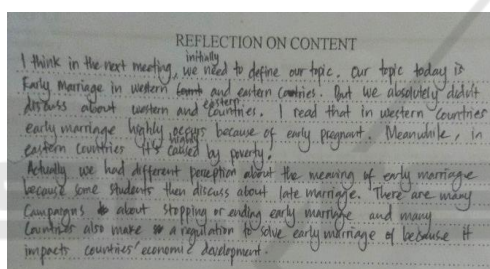 REFLECTION ON CONTENT
I think in the next meeting, initially we need to define our topic. Our topic today is
Early Marriage in western and eastern Countries. But we absolutely didn't
discuss about western and eastern countries. I read that in western countries
early marriage highly occurs because of early pregnant. Meanwhile, in
eastern countries it's highly caused by poverty.
Actually we had different perception about the meaning of early marriage
because some students then discuss about late marriage. There are many
Campaigns about stopping or ending early marriage and many
Countries also make a regulation to solve early marriage of because it
impacts countries' economic development.